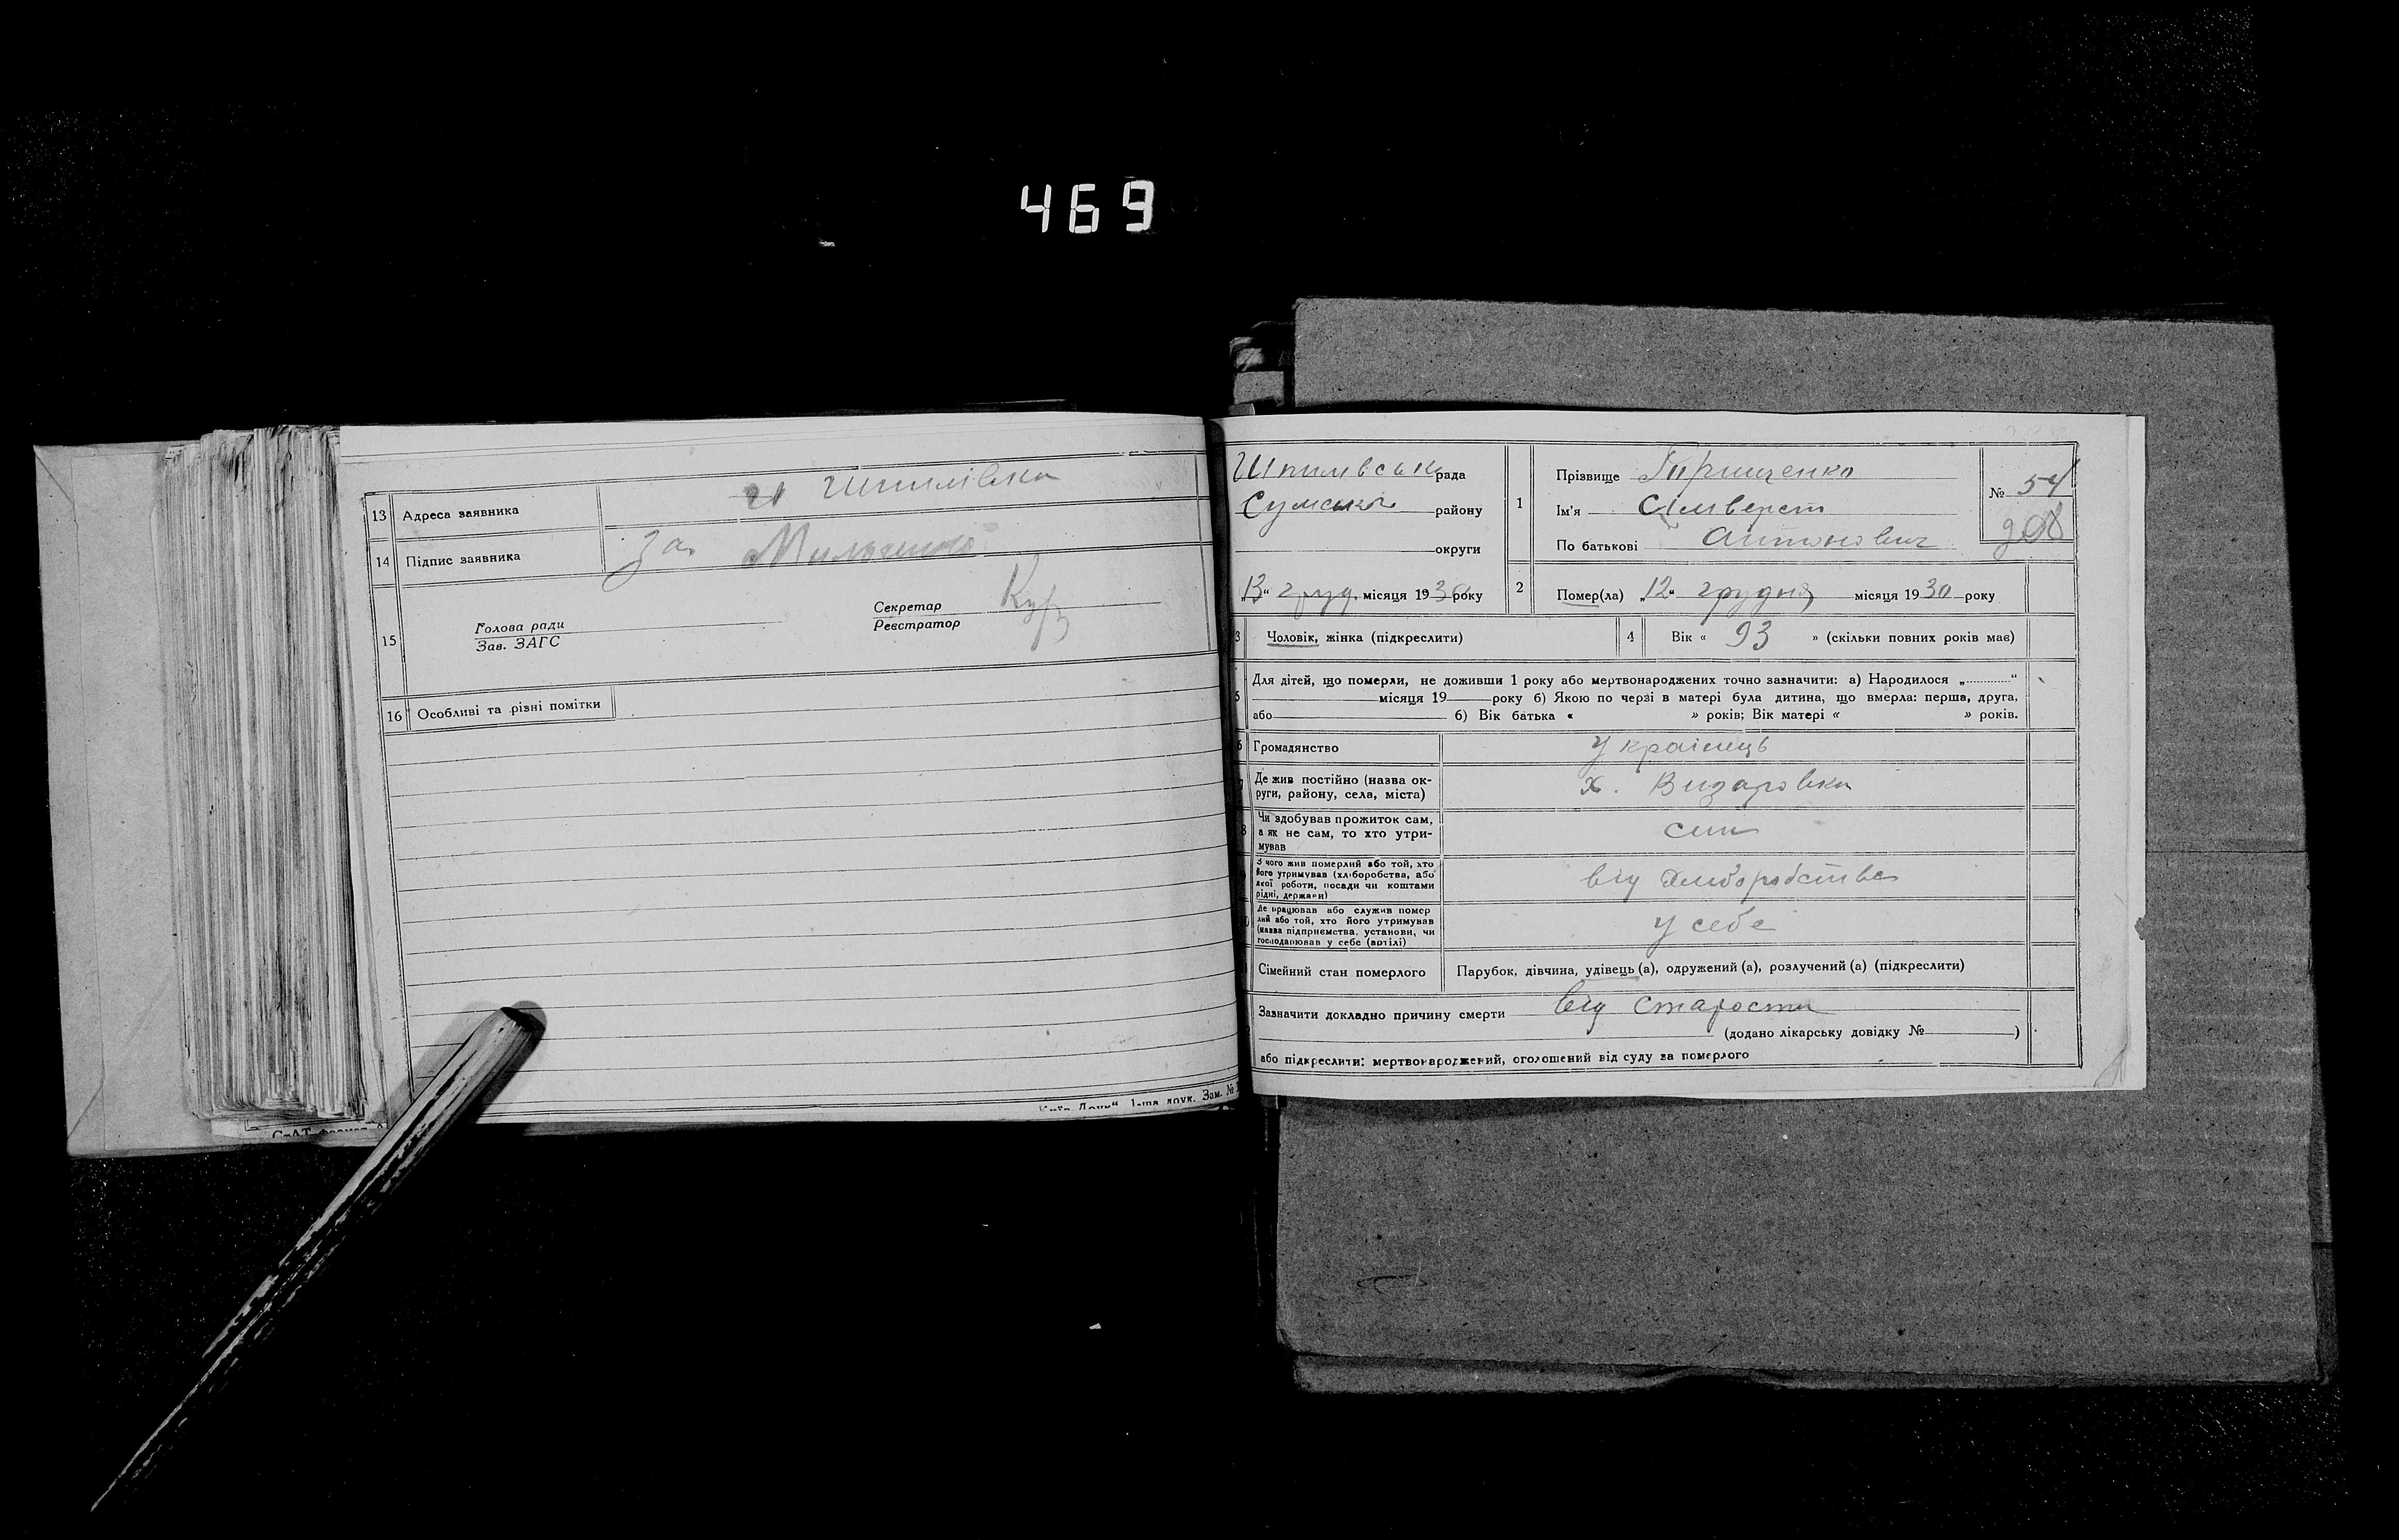 469
13 Адреса заявника Шпилівка
14 Підпис заявника за
15 Голова ради
Зав. ЗАГС
Секретар
Реєстратор
16 Особливі та різні помітки
Зам. №
Шпилівськ рада
Сумська району
округи
„13“ груд. місяця 1930 року
1 Прізвище
Ім'я Сильверст
По батькові Антонович
№ 54
2 Помер(ла) „12“ грудня місяця 1930 року
3 Чоловік, жінка (підкреслити)
4 Вік « 93 » (скільки повних років має)
5 Для дітей, що померли, не доживши 1 року або мертвонароджених точно зазначити: а) Народилося „............“
місяця 19 року б) Якою по черзі в матері була дитина, що вмерла: перша, друга,
або б) Вік батька « » років; Вік матері « » років.
6 Громадянство Українець
7 Де жив постійно (назва ок-
руги, району, села, міста) х. Визаровка
8 Чи здобував прожиток сам,
а як не сам, то хто утри-
мував син
З чого жив померлий або той, хто
його утримував (хліборобства, або
якої роботи, посади чи коштами
рідні, держави) від хліборобства
Де працював або служив помер
лий або той, хто його утримував
(назва підприємства, установи, чи
господарював у себе (артілі) у себе
Сімейний стан померлого Парубок, дівчина, удівець (а), одружений (а), розлучений (а) (підкреслити)
Зазначити докладно причину смерти від старости
(додано лікарську довідку № )
або підкреслити: мертвонароджений, оголошений від суду за померлого